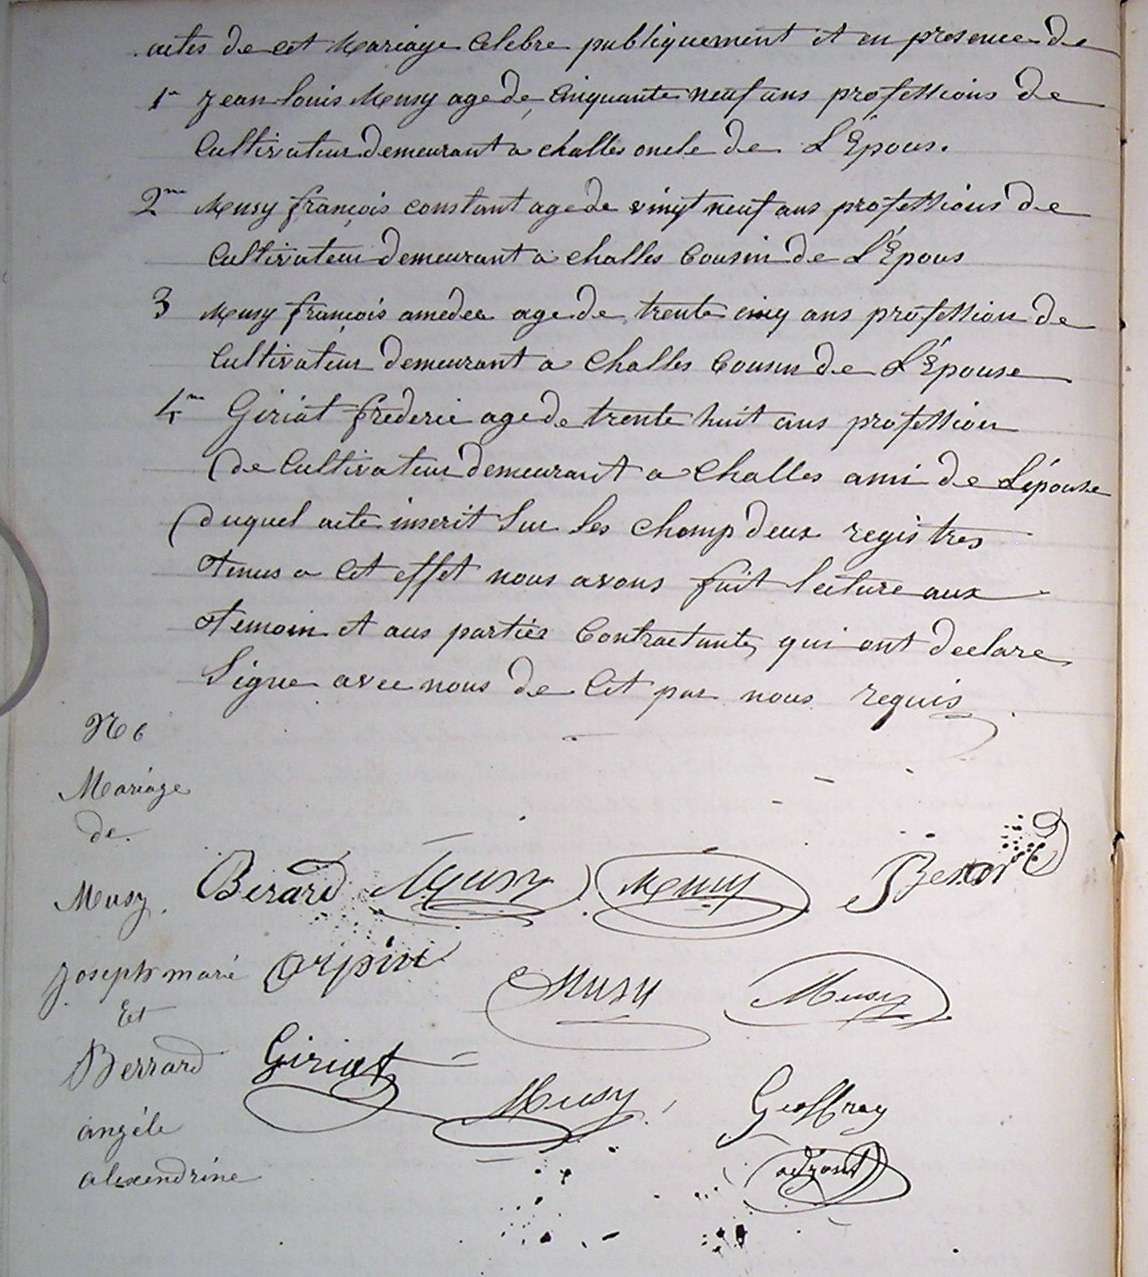 actes de cet Mariage Celebre publiquement et en presence de
1° Jean Louis Musy age de Cinquante neuf ans professions de
Cultivateur demeurant a challes oncle de L'Épous.
2me Musy françois constant age de vingt neuf ans professions de
Cultivateur demeurant a challes Cousin de L'Épous
3 Musy françois amedee age de trente cinq ans profession de
Cultivateur demeurant a Challes Cousin de L'Épouse
4me Giriat frederic age de trente huit ans profession
de Cultivateur demeurant a Challes ami de L'épouse
duquel acte inscrit Sur les champ deux registres
tenus a Cet effet nous avons fait lecture aux
temoin et aus parties Contractante qui ont declare
Signe avec nous de Cet par nous requis
N 6
Mariage
de
Musy
Joseph marie
Et
Berrard
angéle
alexendrine
Berard Musy Musy
Arpin Musy Musy
Giriat Musy Geoffray
adjoint